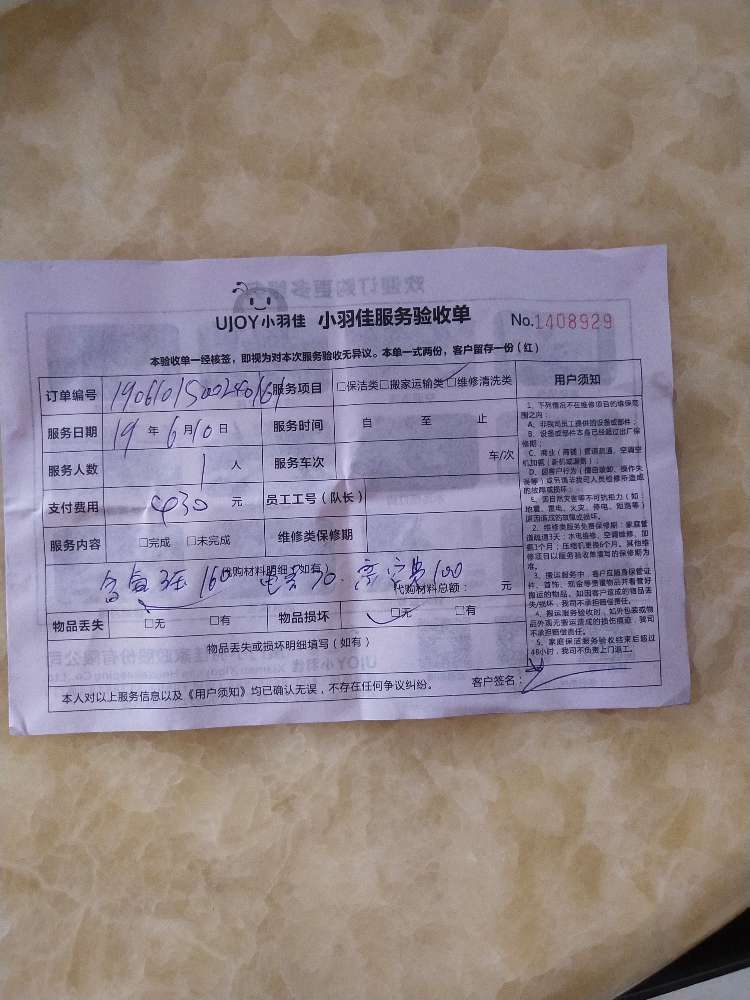 UJOY小羽佳 小羽佳服务验收单 No.1408929
本验收单一经核签，即视为对本次服务验收无异议。本单一式两份，客户留存一份（红）
订单编号 服务项目 □保洁类□搬家运输类□维修清洗类 用户须知
服务日期 19 年 6 月 10 日 服务时间 自 至 止
服务人数 1 人 服务车次 车/次
支付费用 430 元 员工工号（队长）
服务内容 □完成 □未完成 维修类保修期
代购材料明细（如有
160 100
代购材料总额： 元
物品丢失 □无 □有 物品损坏 □无 □有
物品丢失或损坏明细填写（如有）
本人对以上服务信息以及《用户须知》均已确认无误，不存在任何争议纠纷。 客户签名：
1、下列情况不在维修项目的维保范
围之内：
A、非我司员工提供的设备或部件；
B、设备或部件本身已经超过出厂保
修期；
地震、雷电、火灾、停电、短路等）
2、维修类服务免费保修期：家庭管
道疏通3天；水电维修、空调维修、加
氨3个月；压缩机更换6个月。其他维
修项目以服务验收单填写的保修期为
准。
3、搬运服务中，客户应随身保管证
件、首饰、现金等贵重物品并看管好
搬运的物品。如因客户造成的物品丢
失/损坏，我司不承担赔偿责任。
4、搬运服务验收时，如外包装或物
品外观无搬运造成的损伤痕迹，我司
不承担赔偿责任。
5、家庭保洁服务验收结束后超过
48小时，我司不负责上门返工。